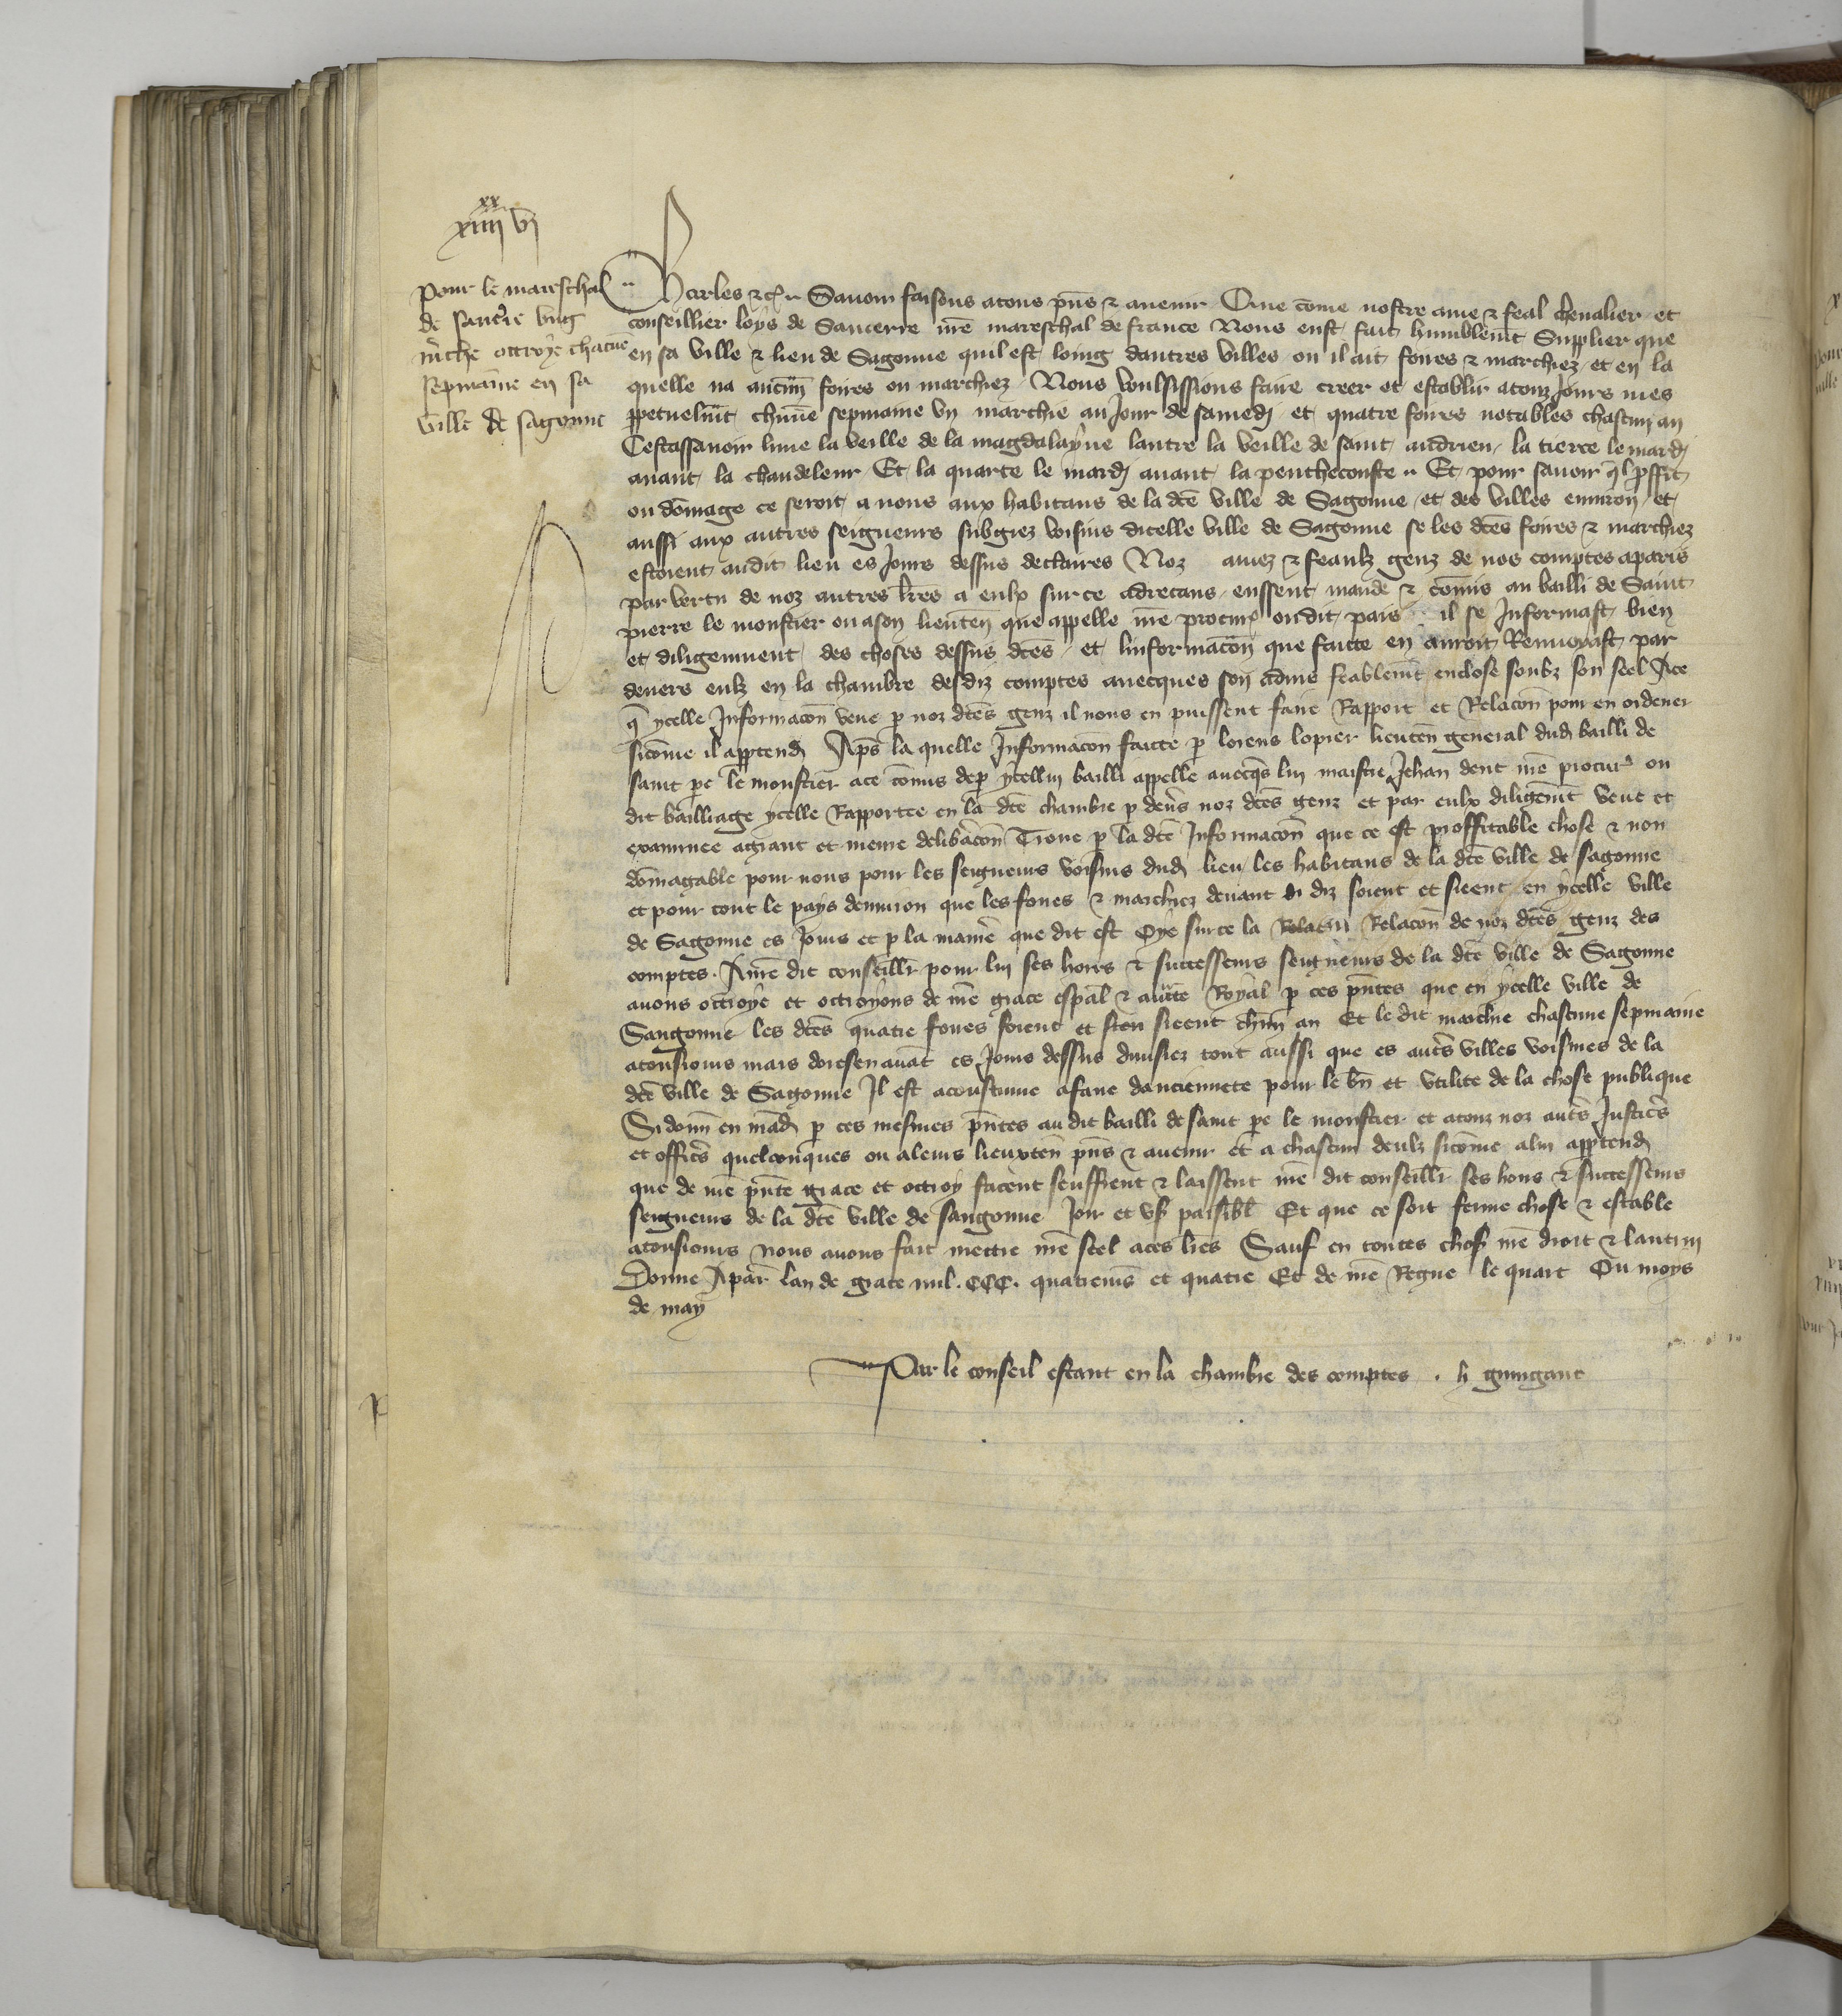 xx
xiiii vi
Pour le mareschal
de sancerre ung
mrche ottroye chacune
sepmaine en sa
ville de sagonne
Charles etc. Savoir faisons a tous pns & avenir Que come nostre ame & feal chevalier et
conseillier loys de Sancerre nre mareschal de france Nous eust fait humblemt Supplier que
en sa ville & lieu de Sagonne quil est loing dautres villes ou il ait foires & marchiez et en la
quelle na aucunes foires ou marchiez Nous voulsissions faire creer et establir a touz Jours mes
ppetuelmt chune sepmaine un marchie au Jour de samedi et quatre foires notables chascun an
Cestassavoir lune la veille de la magdalayne lautre la veille de saint andrieu la tierce le mardi
avant la chandeleur Et la quarte le mardi avant la penthecouste Et pour savoir ql proffit
ou domage ce seroit a nous aux habitans de la dce ville de Sagonne et des villes environ et
aussi aux autres seigneurs subgiez voisins dicelle ville de Sagonne se les dces foires & marchiez
estoient audit lieu es Jours dessus declaires Noz amez & feaulx genz de nos comptes a paris
par vertu de noz autres lres a eulx sur ce adrecans eussent mande & comis au bailli de Saint
pierre le monstier ou a son lieuten que appelle nre procur ou dit pais il se Informast bien
et diligemment des choses dessus dces et linformacon que faicte en auroit Renvoyast par
devers eulz en la chambre desdiz comptes avecques son advis feablemt enclose soubz son seel Ace
q ycelle Informacon veue p noz dces genz il nous en puissent faire Rapport et Relacon pour en ordener
sicome il apptendr Aps la quelle Informacon faicte p lorens lopier lieuten general dud bailli de
saint pe le monstier a ce comis dep ycellui bailli appelle avecqs lui maistre Jehan dent nre procur ou
dit bailliage ycelle Rapportee en la dce chambre p devs noz dces genz et par eulx diligemt veue et
examinee a grant et meure deliberacon Trove p la dce Informacon que ce est proffitable chose & non
domagable pour nous pour les seigneurs voisins dud lieu les habitans de la dce ville de sagonne
et pour tout le pays denviron que les foires & marchiez devant diz soient et sieent en ycelle ville
de Sagonne es Jours et p la maniere que dit est Oye sur ce la Relacon de noz dces genz des
comptes. A nre dit conseillr pour lui ses hoirs & successeurs seigneurs de la dce ville de Sagonne
avons ottroye et ottroyons de nre grace espal & aucte Royal p ces pntes que en ycelle ville de
Sangonne les dces quatre foires soient et sieent chun an Et le dit marchie chascune sepmaine
a tousiours mais doresenavant es Jours dessus divisiez tout aussi que es autrs villes voisines de la
dce ville de Sagonne Il est acoustume a faire danciennete pour le bn et utilite de la chose publique
Si donn en mad p ces mesmes pntes au dit bailli de saint pe le monstier et a touz noz autrs Justicrs
et officrs quelconques ou a leurs lieuxten pns & avenir et a chascun deulz sicome a lui apptendr
que de nre pnte grace et ottroy facent seuffrent & laissent nre dit conseillr ses hoirs & successeurs
seigneurs de la dce ville de sangonne Joir et usr paisibl Et que ce soit ferme chose & estable
a tousiours nous avons fait mettre nre seel a ces lres Sauf en toutes chos nre droit & lautrui
Donne A par lan de grace mil. CCC. quatrevins et quatre Et de nre Regne le quart Ou moys
de may
Par le conseil estant en la chambre des comptes . h guingant